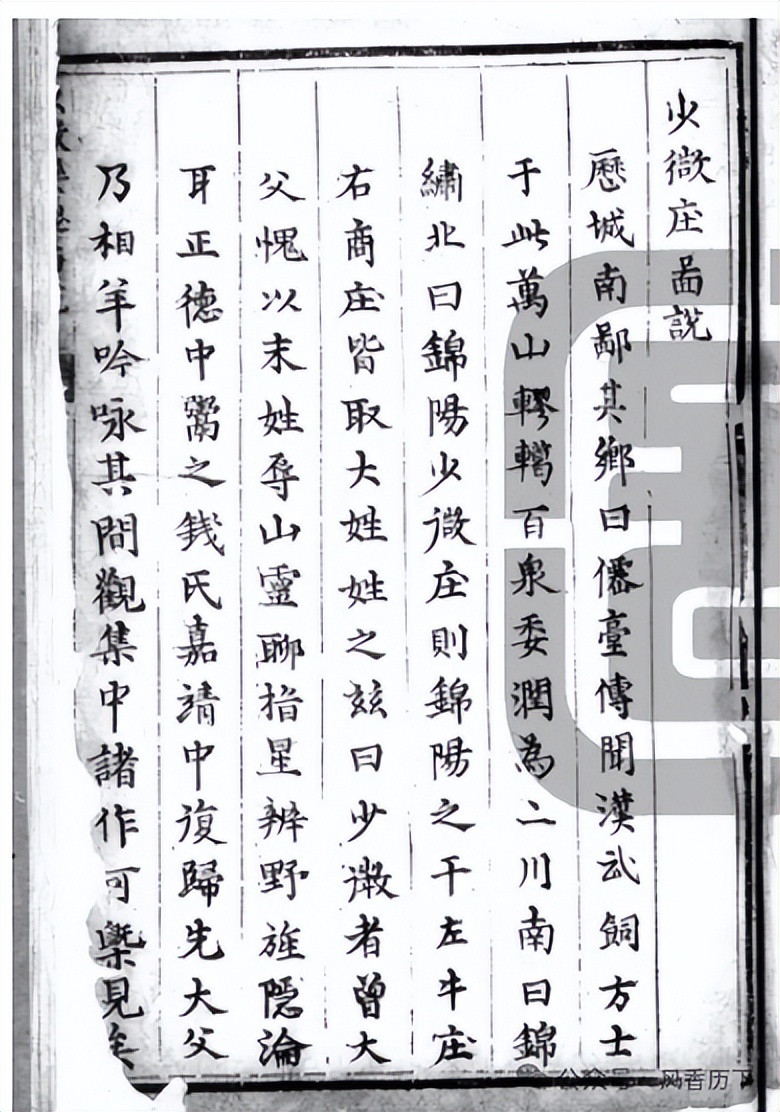 少微庄啚說
厯城南鄙其鄉曰僊臺傳聞漢武飼方士
于此萬山轇轕百泉委潤為二川南曰錦
繡北曰錦陽少微庄則錦陽之干左牛庄
右商庄皆取大姓姓之玆曰少微者曾大
父愧以末姓辱山靈聊指星辨野旌隠淪
耳正徳中鬻之錢氏嘉靖中復歸先大父
乃相羊吟咏其間觀集中諸作可槩見矣
公众号 风香历下